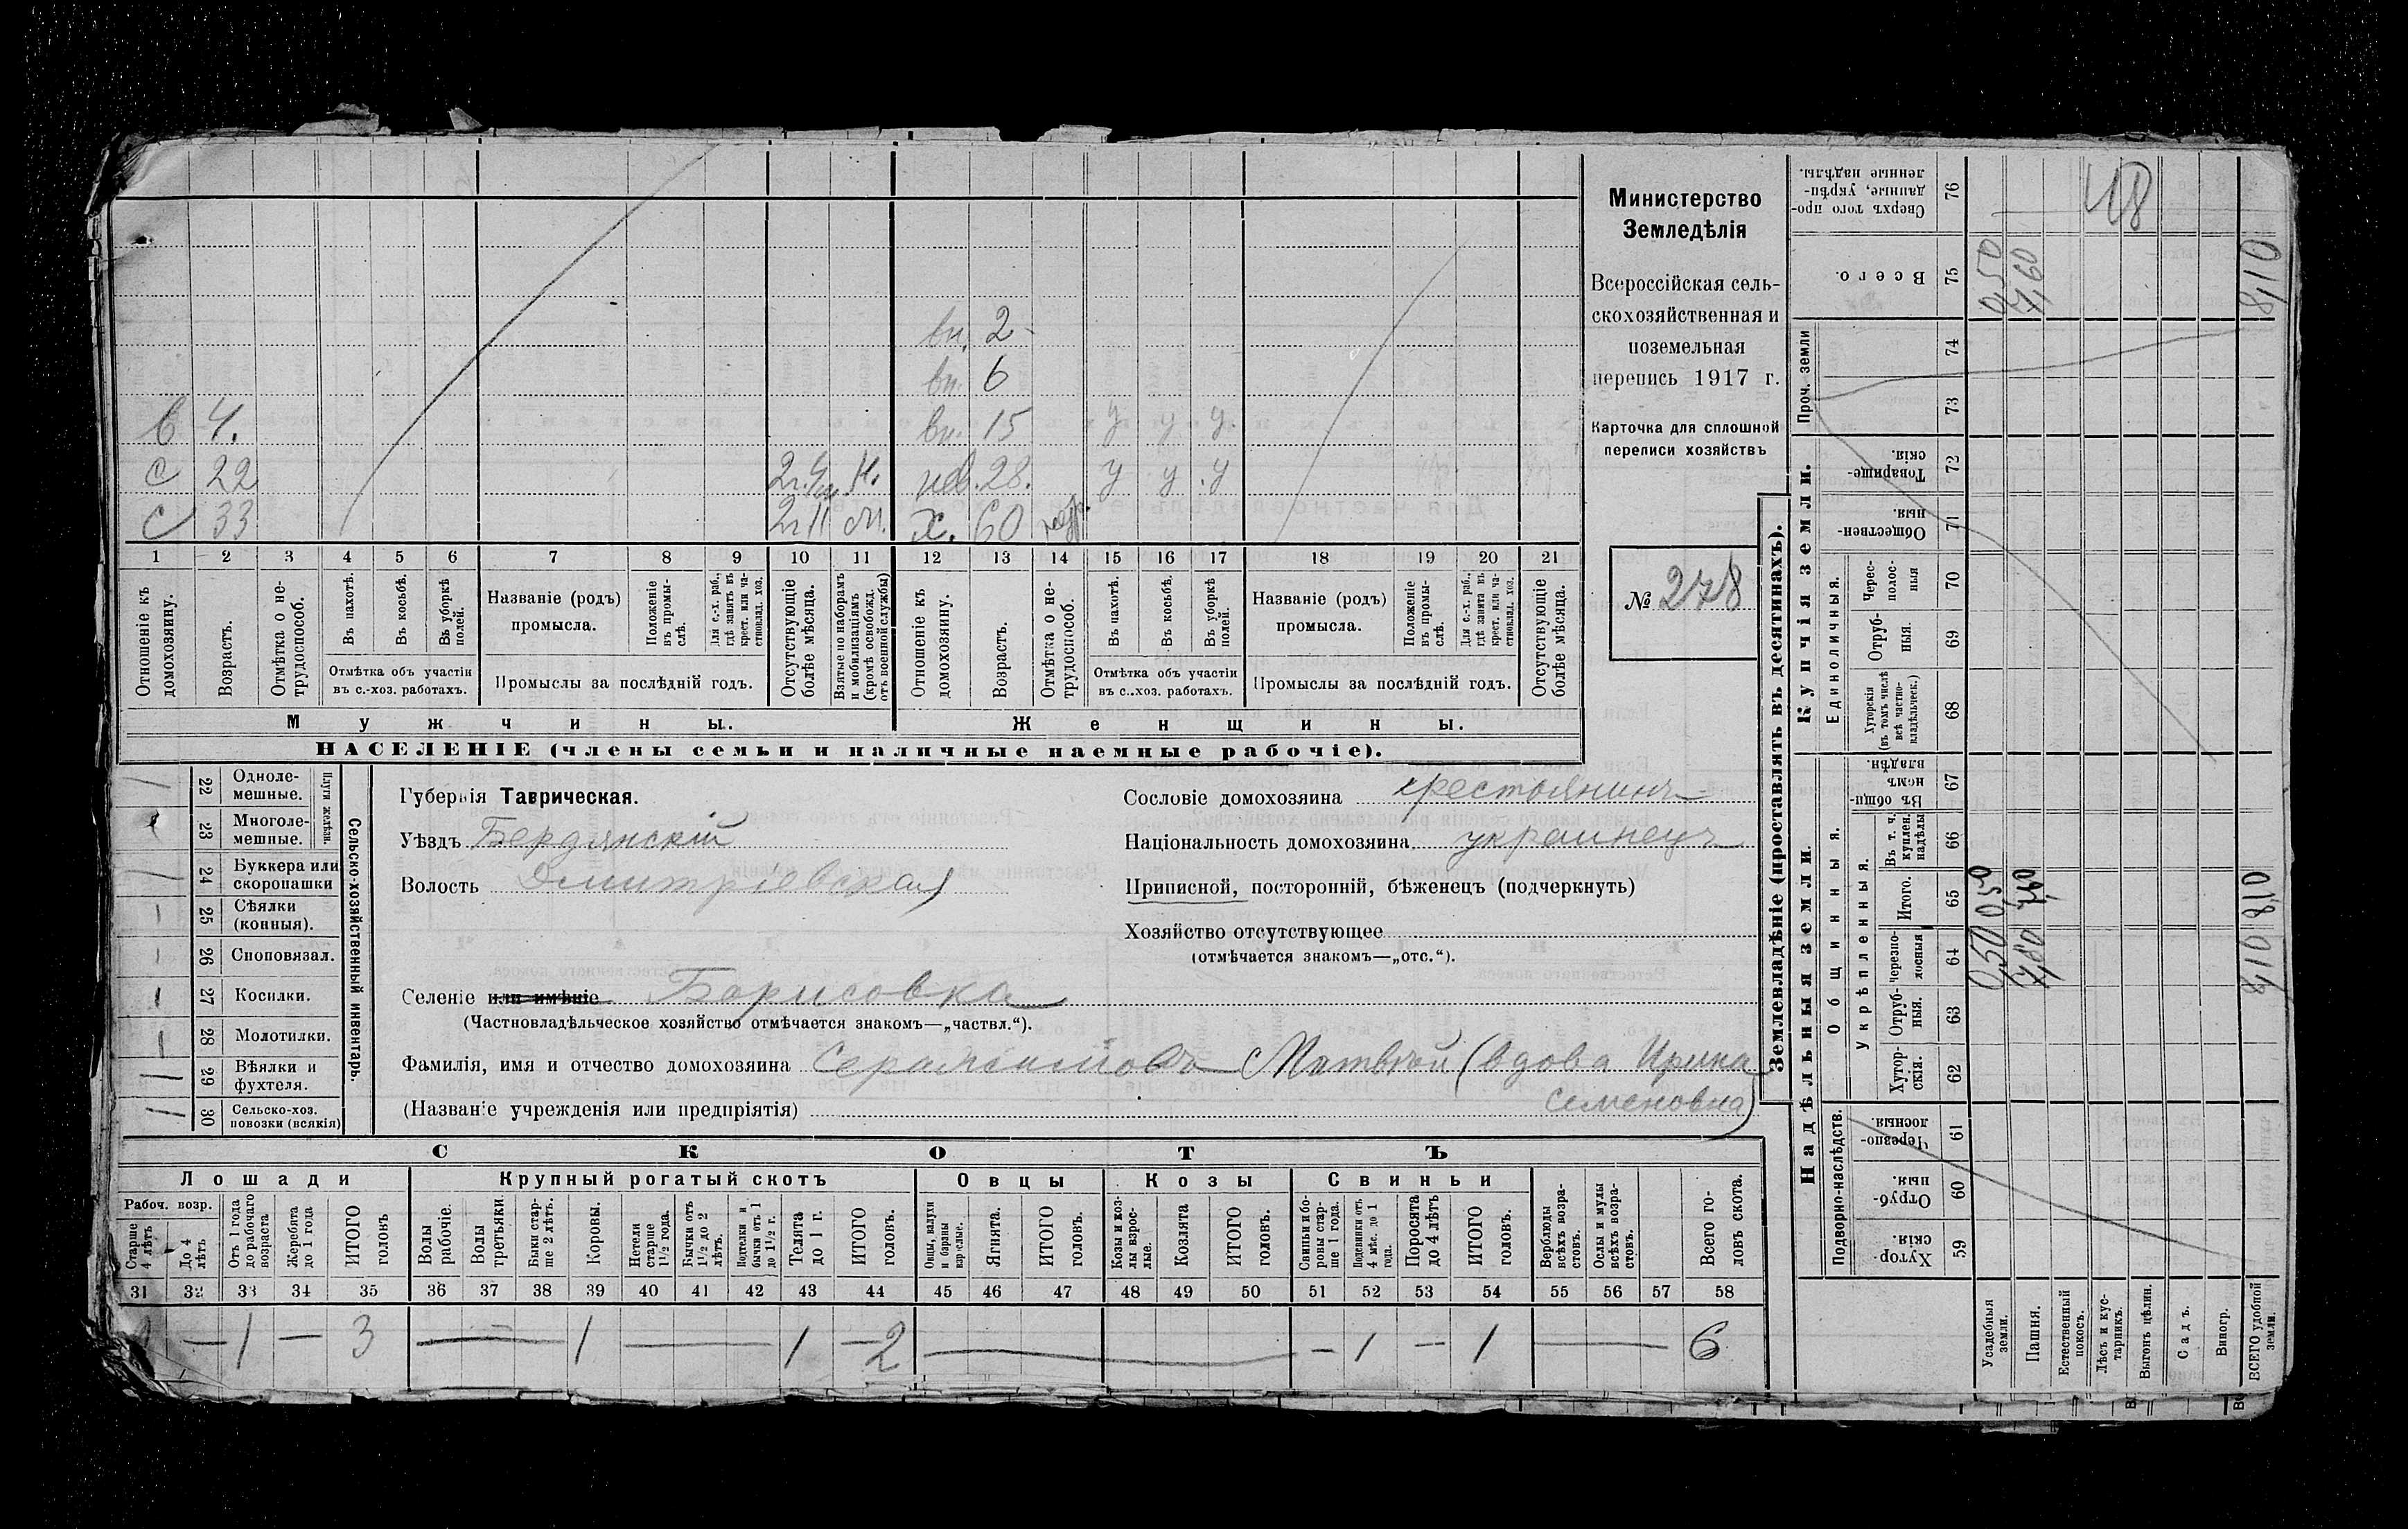 Министерство
Земледѣлія
Всероссійская сель-
скохозяйственная и
поземельная
перепись 1917 г.
Карточка для сплошной
переписи хозяйствъ
№ 278
вн. 2
вн. 6
в 4. вн. 15 у у у.
с 22 нев. 28. у у у
с 33 х. 60
1 2 3 4 5 6 7 8 9 10 11 12 13 14 15 16 17 18 19 20 21
Отношеніе къ домохозяину.
Возрастъ.
Отмѣтка о не-трудоспособ.
Въ пахотѣ.
Въ косьбѣ.
Въ уборкѣ полей.
Отмѣтка объ участіи въ с.-хоз. работахъ.
Названіе (родъ) промысла.
Положеніе въ промы-слѣ.
Для с.-х. раб., гдѣ занятъ въ крест. или ча-стновлад. хоз.
Промыслы за послѣдній годъ.
Отсутствующіе болѣе мѣсяца.
Взятые по наборамъ и мобилизаціямъ (кромѣ освобожд. отъ военной службы)
Отношеніе къ домохозяину.
Возрастъ.
Отмѣтка о не-трудоспособ.
Въ пахотѣ.
Въ косьбѣ.
Въ уборкѣ полей.
Отмѣтка объ участіи въ с..хоз. работахъ.
Названіе (родъ) промысла.
Положеніе въ промы-слѣ.
Для с.-х. раб., гдѣ занята въ крест. или ча-стновлад. хоз.
Промыслы за послѣдній годъ.
Отсутствующіе болѣе мѣсяца.
Мужчины. Женщины.
НАСЕЛЕНІЕ (члены семьи и наличные наемные рабочіе).
Сельско-хозяйственный инвентарь.
Плуги желѣзн.
22 Одноле-мешные.
23 Многоле-мешные.
24 Буккера или скоропашки
25 Сѣялки (конныя).
26 Сноповязал.
27 Косилки.
28 Молотилки.
29 Вѣялки и фухтеля.
30 Сельско-хоз. повозки (всякія)
Губернія Таврическая.
Уѣздъ Бердянскій
Волость Дмитріевская
Сословіе домохозяина крестьянинъ
Національность домохозяина украинецъ
Приписной, посторонній, бѣженецъ (подчеркнуть)
Хозяйство отсутствующее
(отмѣчается знакомъ—„отс.“).
Селеніе или имѣніе Борисовка
(Частновладѣльческое хозяйство отмѣчается знакомъ—„частвл.“).
Фамилія, имя и отчество домохозяина Матвѣй (вдова Ирина
(Названіе учрежденія или предпріятія) Семеновна)
СКОТЪ
Лошади Крупный рогатый скотъ Овцы Козы Свиньи
Рабоч. возр.
Старше 4 лѣтъ
До 4 лѣтъ
Отъ 1 года до рабочаго возраста
Жеребята до 1 года
ИТОГО головъ
Волы рабочіе.
Волы третьяки.
Быки стар-ше 2 лѣтъ.
Коровы.
Нетели старше 1½ года.
Бычки отъ 1½ до 2 лѣтъ.
Подтелки и бычки отъ 1 до 1½ г.
Телята до 1 г.
ИТОГО головъ.
Овцы, валухи и бараны взрослые.
Ягнята.
ИТОГО головъ.
Козы и коз-лы взрос-лые.
Козлята
ИТОГО головъ.
Свиньи и бо-ровы стар-ше 1 года.
Подсвинки отъ 4 мѣс. до 1 года.
Поросята до 4 лѣтъ
ИТОГО головъ.
Верблюды всѣхъ возра-стовъ.
Ослы и мулы всѣхъ возра-стовъ.
Всего го-ловъ скота.
31 32 33 34 35 36 37 38 39 40 41 42 43 44 45 46 47 48 49 50 51 52 53 54 55 56 57 58
— 1 — 3 — 1 — 1 — 2 — — 1 — 1 — 6
Землевладѣніе (проставлять въ десятинахъ).
Надѣльныя земли. Купчія земли.
Подворно-наслѣдств.
Общинныя.
Укрѣпленныя.
Единоличныя.
Проч. земли
Хутор-скія. 59
Отруб-ныя. 60
Черезпо-лосныя. 61
Хутор-скія. 62
Отруб-ныя. 63
черезпо-лосныя 64
Итого. 65
Въ т. ч. куплен. надѣлы 66
Въ общи-номъ владѣн. 67
Хуторскія (въ томъ числѣ всѣ частно-владѣльческ.) 68
Отруб-ныя. 69
Черес-полос-ныя 70
Обществен-ныя. 71
Товарище-скія. 72
73
74
Всего. 75
Сверхъ того про-данные, укрѣп-ленные надѣлы. 76
Усадебныя земли. 0,50 0,50 0,50
Пашня. 7,60 7,60 7,60
Естественный покосъ.
Лѣсъ и кус-тарникъ.
Выгонъ цѣлин.
Садъ.
Виногр.
ВСЕГО удобной земли. 8,10 8,10 8,10
48